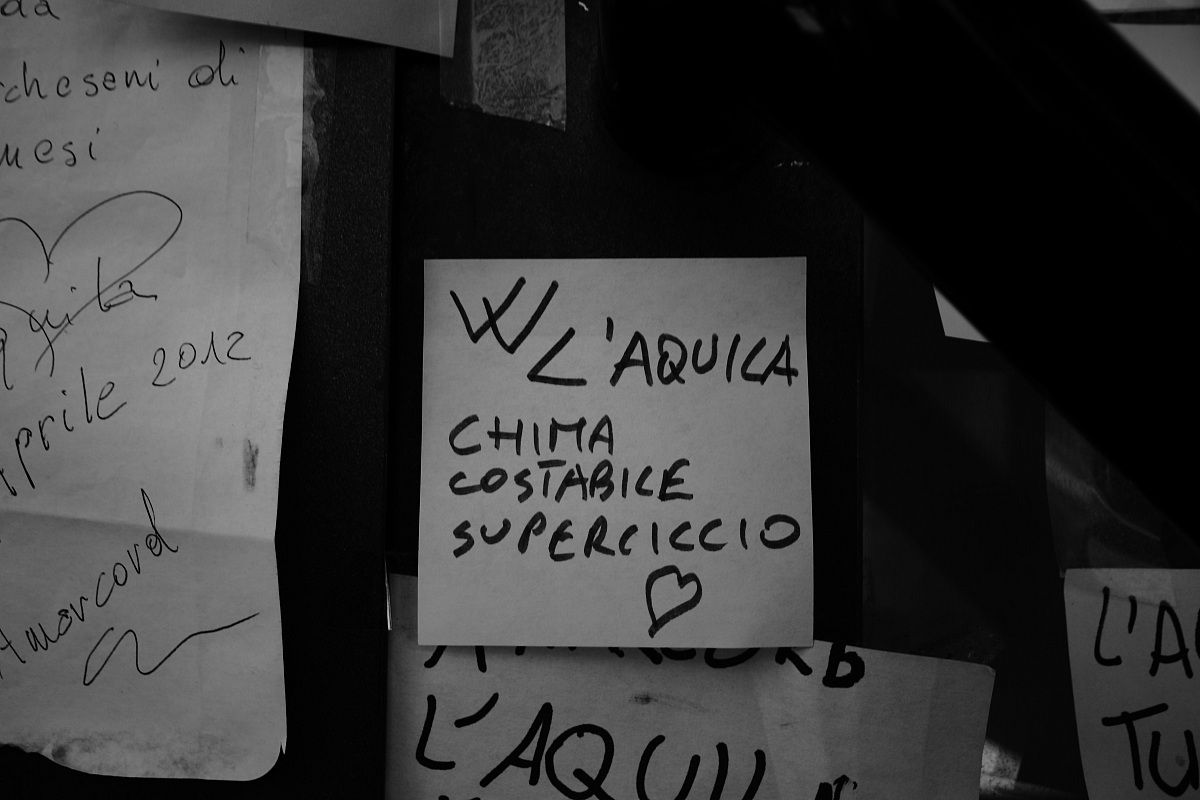 da
cheseni di
mesi
Aprile 2012
Amarcord
W L'AQUILA
CHIMA
COSTABILE
SUPERCICCIO
L'AQUIL
L'A
TU